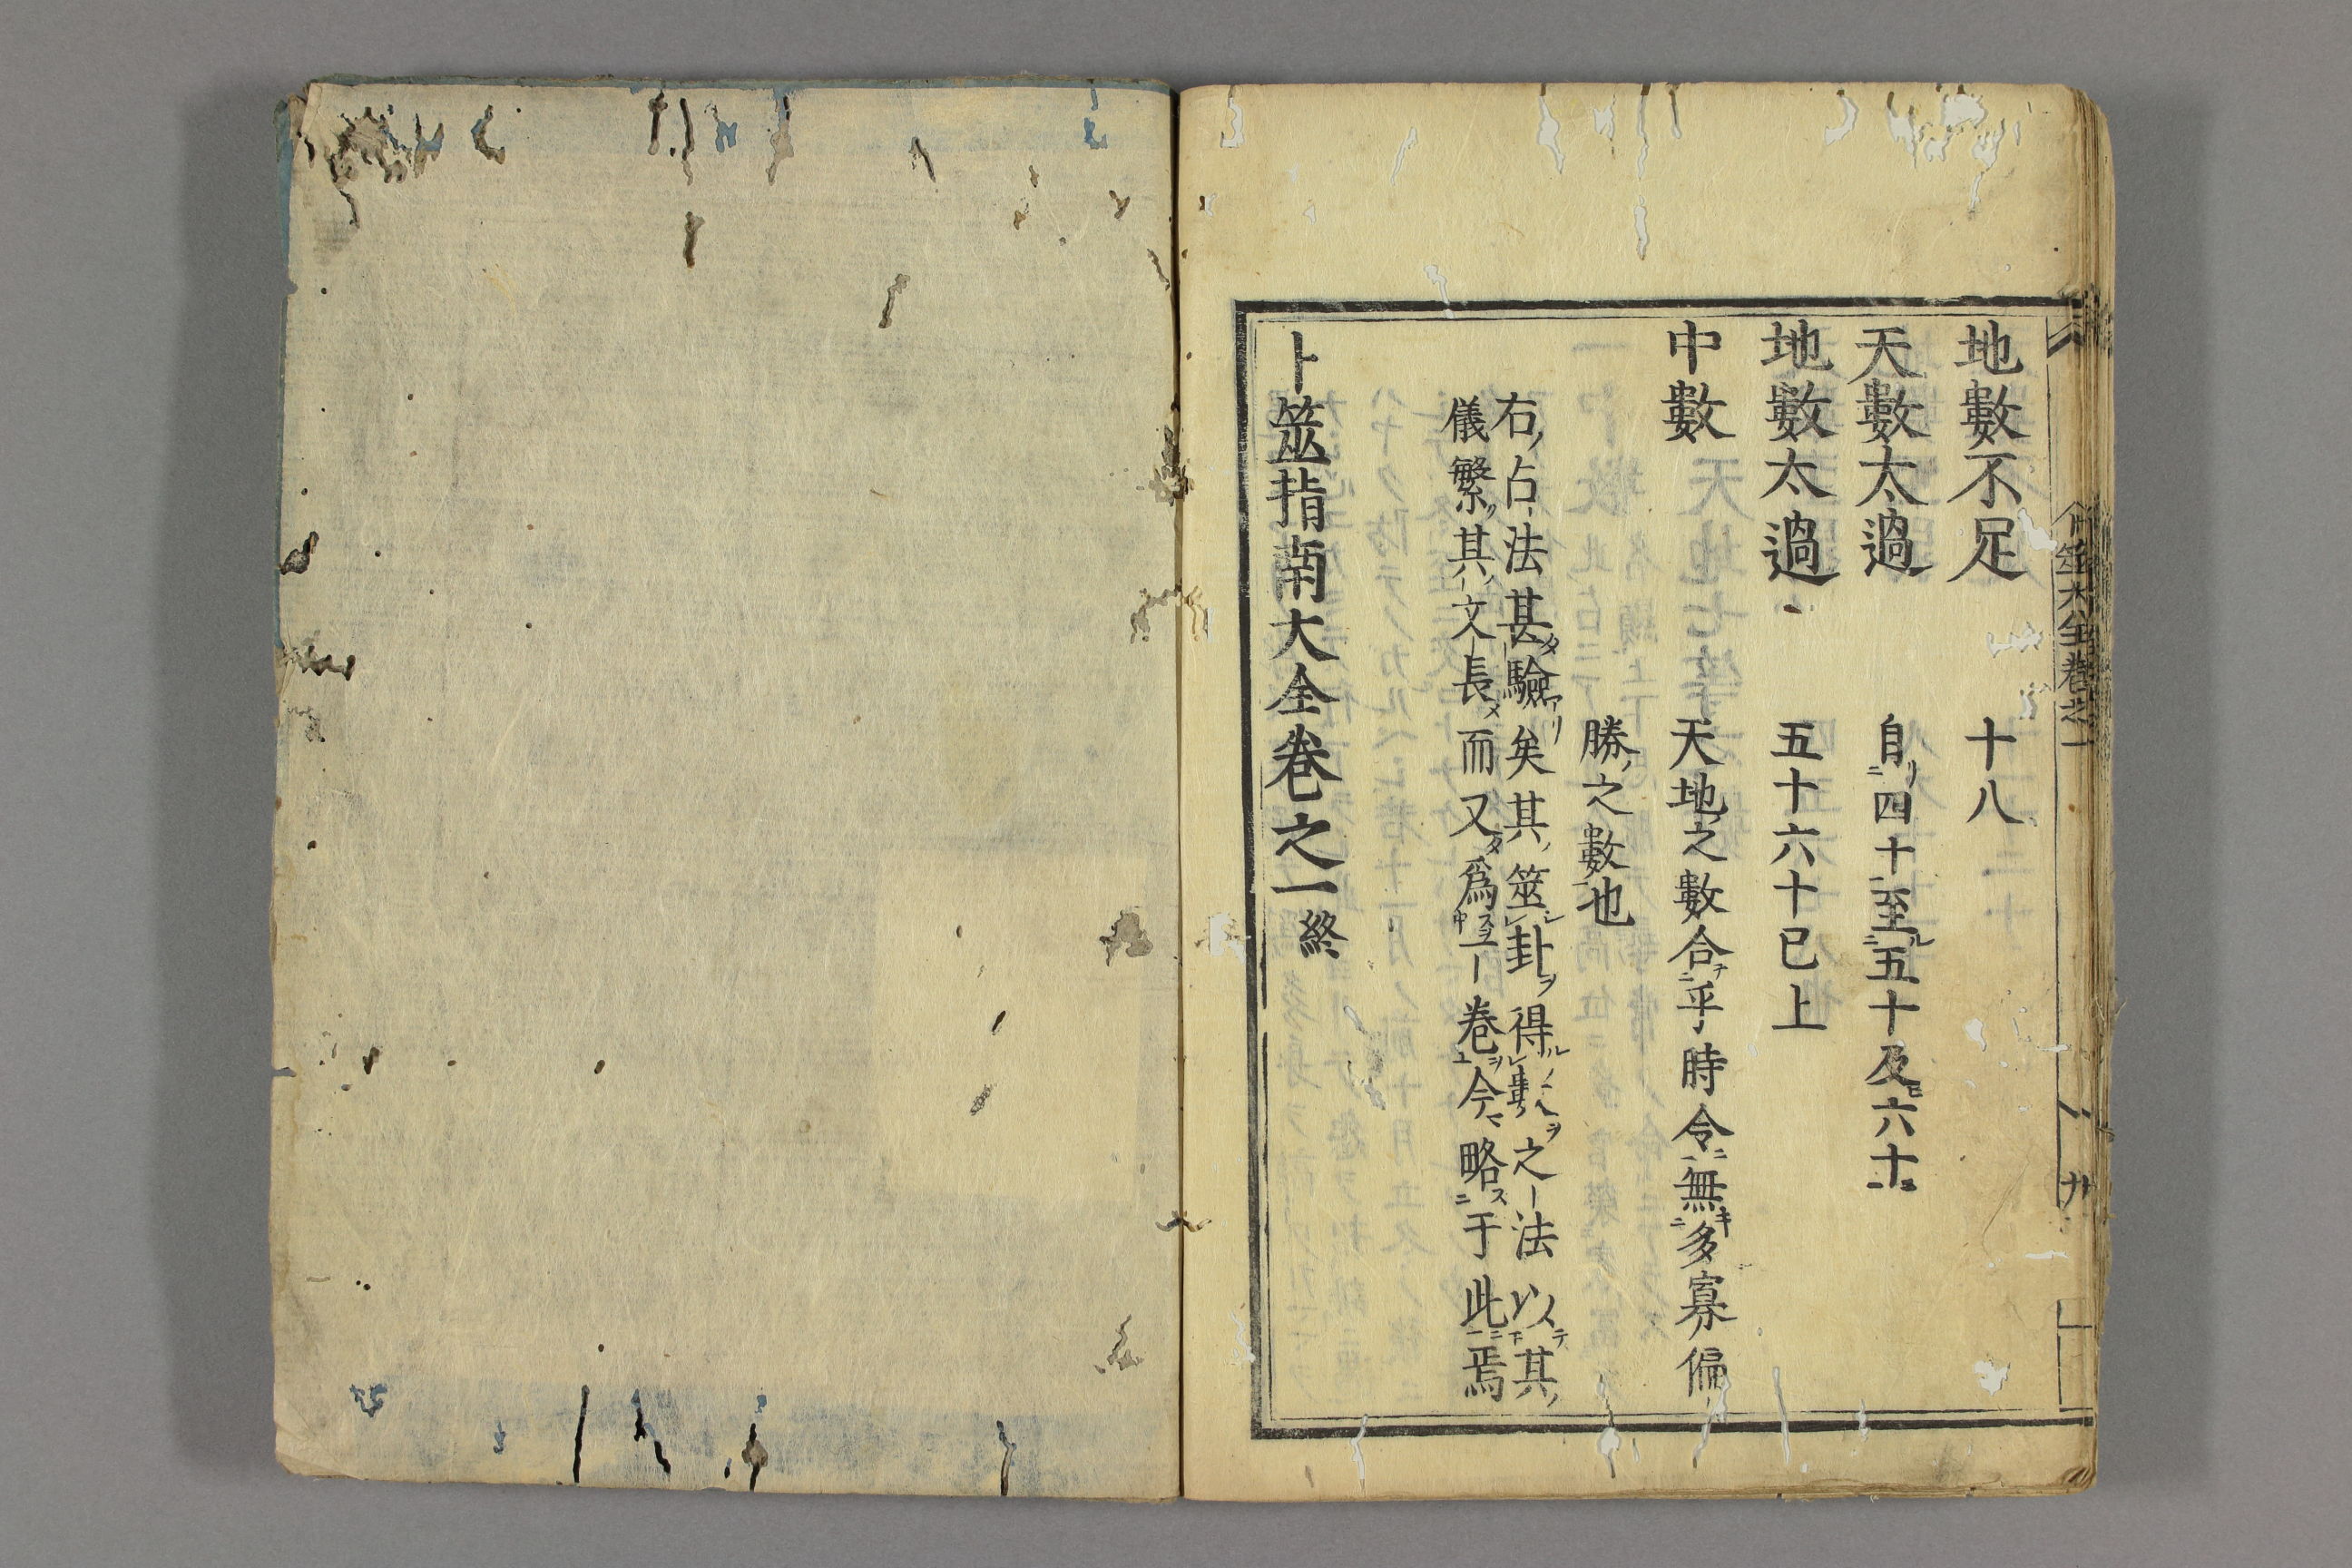 地數不足　十八
天數太過　自四十至五十及六十
地數太過　五十六十已上
中數　天地之數合乎時令無多寡偏
勝之數也
右占法甚驗矣其筮卦得數之法以其
儀繁其文長而又爲一巻今略于此焉
卜筮指南大全巻之一終
卜筮大全巻之一
廾